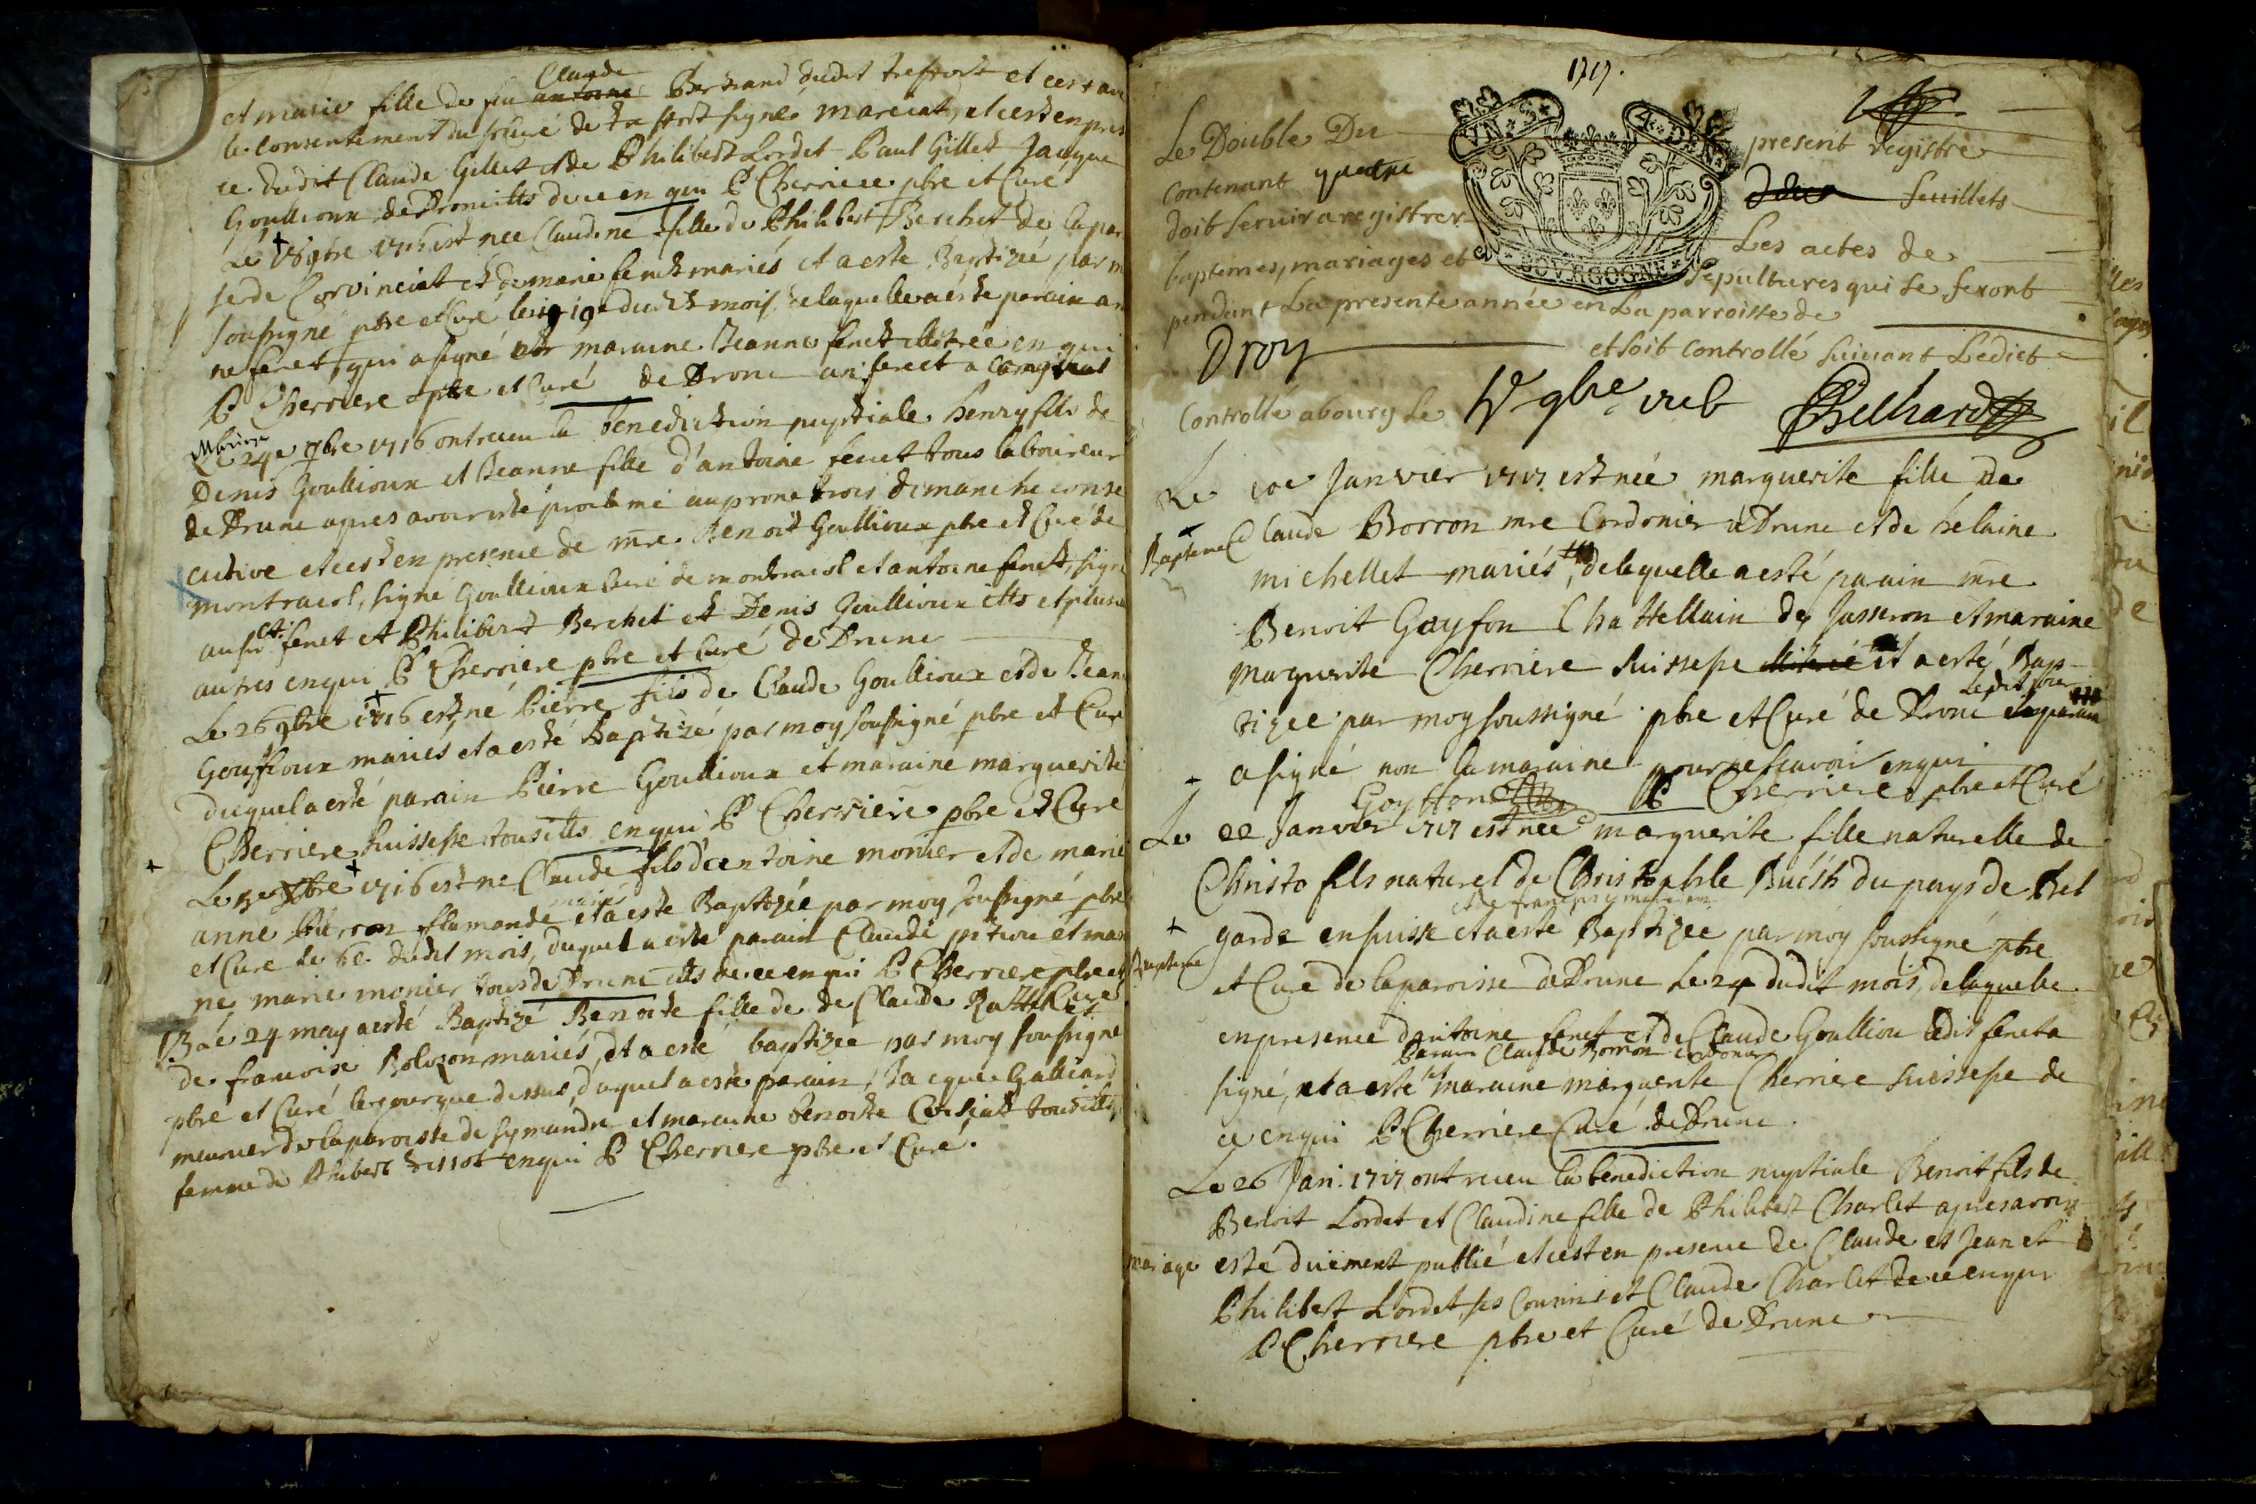 Claude
et marie fille de feu antoine Bertrand dudit treffort et cest au
le consentement du sr curé de treffort signé marechal, et cest en pres
ce dudit Claude Gillet et de Philibert Lordet Paul Gillet Jacque
Goullioux de Drom illts de ce en qui P Cherriere pbre et Curé
Le 18 9bre 1716 est nee Claudine fille de Philibert Berchet de la par
se de Corvinciat et de marie feret mariés et a esté Baptizée par m
soussigné pbre et Curé le 19e dudit mois de laquelle a esté parain an
ne feret qui a signé et maraine Jeanne feret illitrée en qui
P Cherriere pbre et Curé de Drom
Le 24e 9bre 1716 ont receu la benediction nuptiale henry fils de
Denis Goullioux et Jeanne fille d'antoine feret tous laboureur
de Drune apres avoir esté proclamé au prone trois dimanche conse
cutive et cest en presence de mre Benoit Goullioux pbre et Curé de
montracol, signé Goullioux Curé de montracol et antoine feret, signé
aussi feret et Philibert Berchet et Denis Goullioux illts et plusieurs
autres en qui P Cherriere pbre et Curé de Drune
Le 26 9bre 1716 est né Pierre fils de Claude Goullioux et de Jean
Goullioux mariés et a esté Baptizé par moy soussigné pbre et Curé
duquel a esté parain Pierre Goullioux et maraine marguerite
Cherriere suissesse tous illts en qui P Cherriere pbre et Curé
Le 5e Xbre 1716 est ne Claude fils d'antoine monier et de marie
anne flamande et a esté Baptizée par moy soussigné pbre
et Curé le 6e dudit mois, duquel a esté parain Claude et marai
ne marie monier tous de Drune illts de ce en qui P Cherriere pbre et
Curé
24 may a esté Baptizé Benoite fille de de Claude
de francoise Bolozon mariés, et a esté baptizee par moy soussigné
pbre et Curé le jour que dessus, duquel a esté parain Jacque Galliard
meunier de la paroisse de symandre et maraine benoite Corsiat tous illts
femme de Philibert en qui P Cherriere pbre et Curé.
1717.
VN · S · 4 · DEN
BOVRGOGNE
Le Double Du present registre
Contenant quatre feuillets
doit servir a registrer Les actes de
baptemes, mariages et sepultures qui se feront
pendant La presente année en La parroisse de
Drom et soit controllé suivant Ledict
Controllé a bourg le 9bre 1716
Le 10e Janvier 1717 est née marguerite fille de
Bapteme Claude Borron mre Cordonier a Drune et de hélaine
michellet mariés, de laquelle a esté parain mre
Benoit Goyffon Chattellain de Jasseron et maraine
marguerite Cherriere suissesse et a esté Bap-
tizee par moy soussigné pbre et Curé de Drom ledit jour
a signé non la maraine pour ne scavoir en qui
Goyffon P Cherriere pbre et Curé
Le 22 Janvier 1717 est née marguerite fille naturelle de
Christo fils naturel de Christophle du pays de Bel
garde en suisse et a esté Baptizee par moy soussigné pbre
Bapteme et Curé de la paroisse de Drune Le 24 dudit mois, de laquelle
en presence d'antoine feret et de Claude Goulliou ledit feret a
parain Claude Borron cordonier
signé, et a esté et maraine marguerite Cherriere suissesse de
ce en qui P Cherriere Curé de Drune
Le 26 Jan. 1717 ont receu la benediction nuptiale Benoit fils de
Benoit Lordet et Claudine fille de Philibert Charlet apres avoir
mariage esté duement publié et cest en presence de Claude et Jean et
Philibert Lordet ses Cousins et Claude Charlet de ce en qui
P Cherriere pbre et Curé de Drune